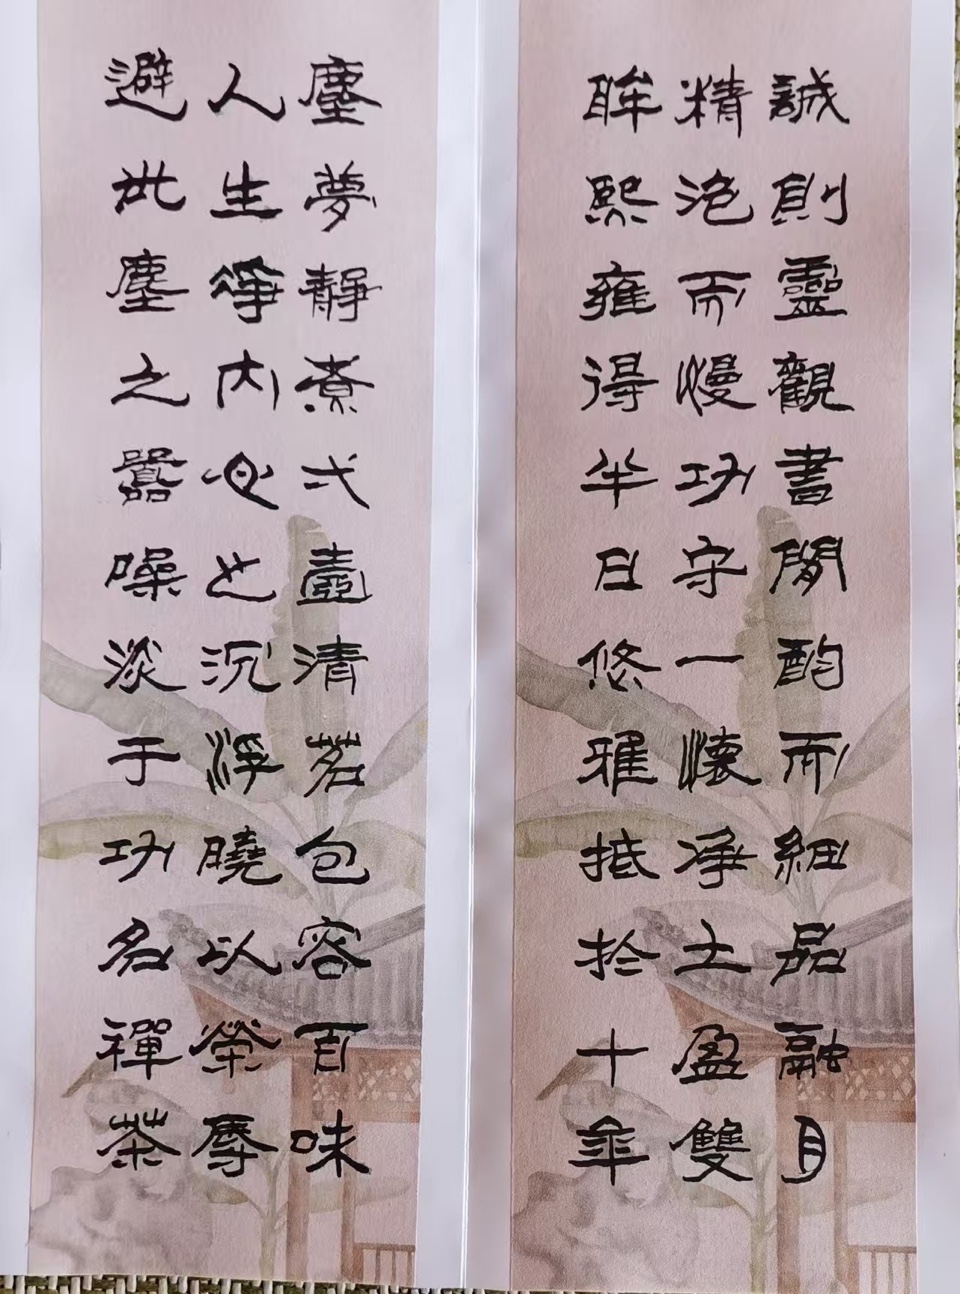 塵夢靜煮弌壺清茗包容百味
人生淨內心之沉浮曉以榮辱
避世塵之囂噪淡于功名禪茶
誠則靈觀書閒酌而細品融月
精泡而慢功守一懷凈土盈雙
眸熙雍得半日悠雅抵扵十年